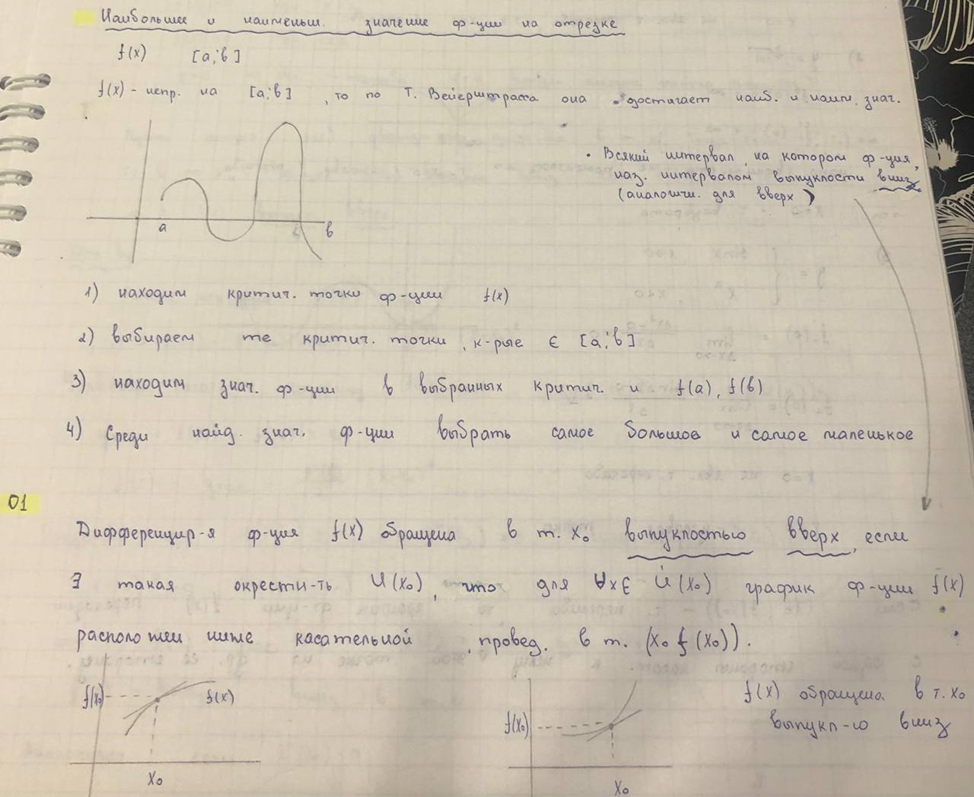 Наибольшее и наименьш. значение ф-ции на отрезке
f(x) [a;b]
f(x) - непр. на [a;b], то по Т. Вейерштрасса она достигает наиб. и наим. знач.
• Всякий интервал, на котором ф-ция,
наз. интервалом выпуклости вниз
(аналогичн. для вверх)
a b b
1) находим критич. точки ф-ции f(x)
2) выбираем те критич. точки, к-рые ∈ [a;b]
3) находим знач. ф-ции в выбранных критич. и f(a), f(b)
4) Среди найд. знач. ф-ции выбрать самое большое и самое маленькое
01
Дифференцир-я ф-ция f(x) обращена в т. x₀ выпуклостью вверх, если
∃ такая окрестн-ть U(x₀), что для ∀x∈ U̇(x₀) график ф-ции f(x)
расположен ниже касательной, провед. в т. (x₀ f(x₀)).
f(x₀) f(x)
x₀
f(x₀)
x₀
f(x) обращена в т. x₀
выпукл-ю вниз